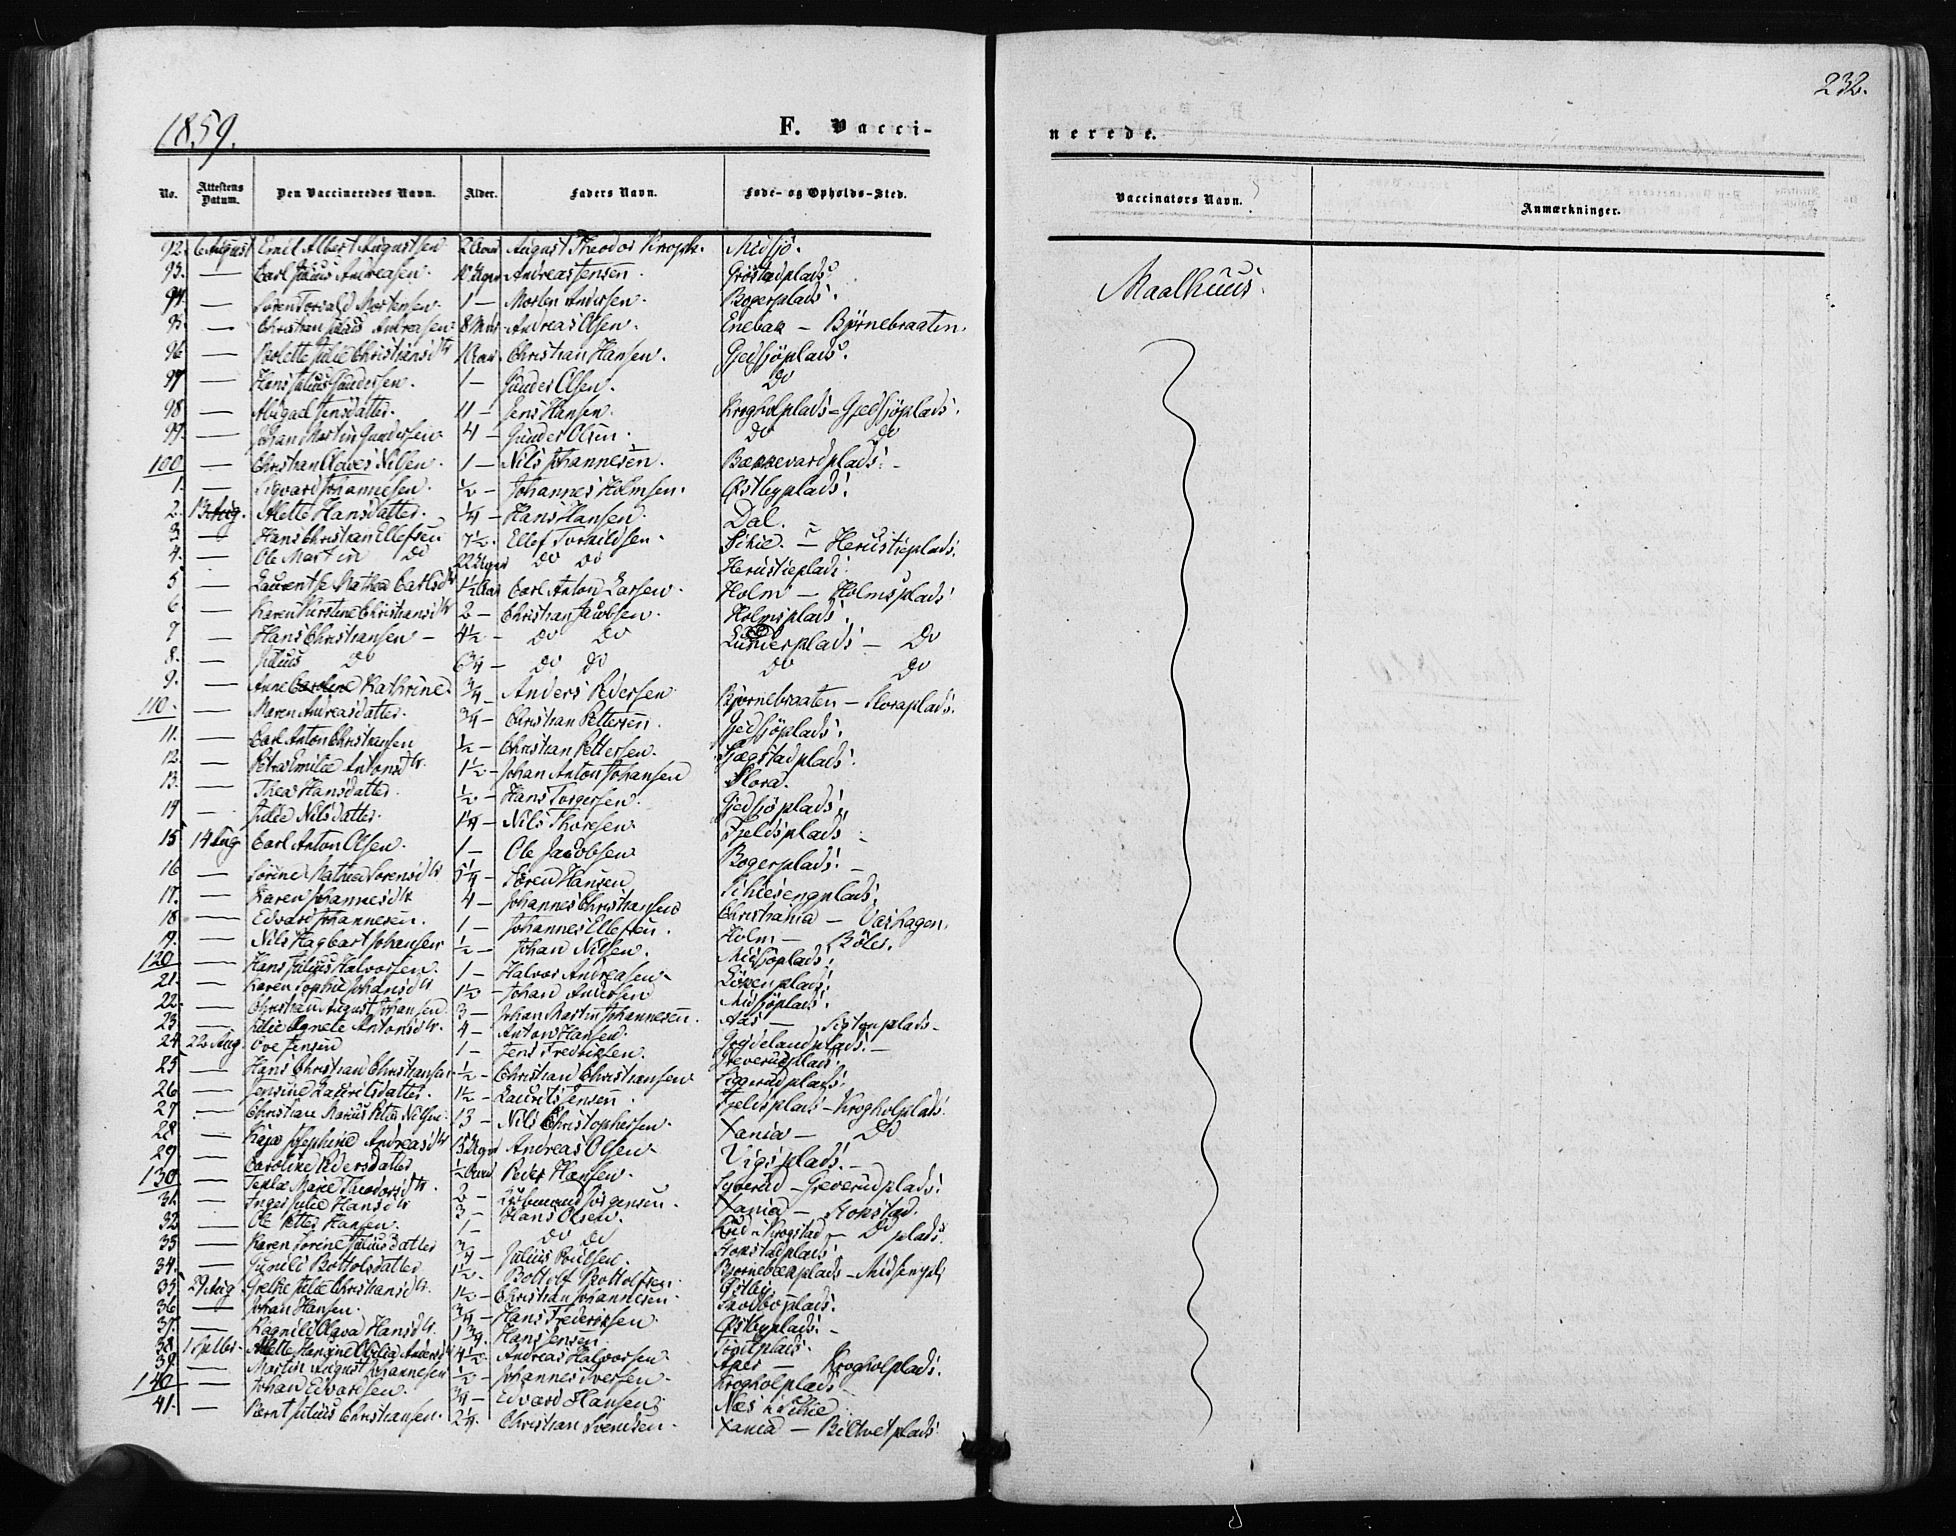 232.
1859.
F. Vacci-
nerede.
No. Attestens Datum. Den Vaccineredes Navn. Alder. Faders Navn. Føde- og Opholds-Sted.
Vaccinators Navn. Anmærkninger.
92. 6 August Emil Albert Augustsen 2 Aar August Theodor Midsjø.
Maalhuus.
93. — Carl Julius Andreasen. Andreas Jensen. Grøstadplads.
94. — Søren Torvald Mortensen. 1 — Morten Andersen. Bogerplads.
95. — Christian Julius Andreasen. 8 Andreas Olsen. Enebak — Bjørnebraaten.
96. — Bolette Julie Christiansdtr Christian Hansen. Gjedsjøplads.
97. — Hans Julius Gundersen. 1 — Gunder Olsen. Do
98. — Abigael Jensdatter. 11 — Jens Hansen. Krogholplads — Gjedsjøplads.
99. — Johan Martin Gundersen. 4 — Gunder Olsen. Do Do
100. — Christian Nilsen. 1 — Nils Johannesen. Bakkevardplads.
1. — Sigvard Johannesen. ½ — Johannes Holmsen. Østbyplads.
2. 13 Aug. Mette Hansdatter. ¼ — Hans Hansen. Dal.
3. — Hans Christian Ellefsen 7½. Ellef Torkildsen. Skie. — Herustieplads.
4. — Ole Martin Do 22 Uger Do Do Herustieplads.
5. — Laurentse Mathea Carlsdtr 1½ Aar Carl Anton Larsen. Holm — Holmsplads
6. — Karen Kirstine Christiansdtr 2 — Christian Jacobsen. Holmsplads.
7 — Hans Christiansen — 4½ — Do Do — Do
8. — Julius Do 6¾ — Do Do Do Do
9. — Anne Caroline Kathrine. ¾ — Anders Pedersen Bjørnebraaten — Floraplads.
110. — Maren Andreasdatter. ¾ — Christian Pettersen. Gjedsjøplads.
11. — Carl Anton Christiansen ½ — Christian Pettersen. Fjægstadplads.
12. — Petra Emilie Antonsdtr. 1½ — Johan Anton Johansen Flora.
13. — Thea Hansdatter. ½ — Hans Torgersen. Gjedsjøplads.
14 — Nilsdatter. 1¼ — Nils Thoresen. Fjeldsplads
15 14 Aug Carl Anton Olsen. 1 — Ole Jacobsen Bogerplads.
16 — Sørine Mathea Sorensdtr 5¼ — Søren Hansen Skiesengplads.
17. — Karen Johannesdtr 4 — Johannes Christiansen Christiania — Vashagen.
18 — Edvard Johannesen. 1 — Johannes Ellefsen. Holm — Bøler.
19. — Nils Hagbart Johansen ½ — Johan Nilsen. Midsjøplads.
120 — Hans Julius Halvorsen. 1 — Halvor Andreasen — Løkenplads.
21. — Karen Sophie Johansdtr 1½ — Johan Andersen Midsjøplads.
22. — Christian August Johansen. 3 — Johan Martin Johannesen. Aas —
23 — Julie Agnete Antonsdtr. 4 — Anton Hansen.
24 22 Aug. Ove Jensen 1 — Jens Fredriksen. Greverudplads.
25 — Hans Christian Christiansen ½ — Christian Christiansen Siggerudplads.
26 — Jensine Lauritsdatter. 1½ — Laurits Jensen. Fjeldsplads — Krogholplads.
27 — Christian Marius Peter Nilsen. 13 — Nils Christophersen. Xania — Do
28 — Kaja Josephine Andreasdtr Andreas Olsen. Vigsplads. —
29 — Caroline Pedersdatter ½ Aar Peder Hansen. — Greverudplads.
130 — Marie Theodorsdtr. Jørgensen. Xania — Stokstad.
31. — Inger Julie Hansdtr 3 — Hans Olsen. Krogstad — Do plads.
32 — Ole Petter Hansen. 1 — Do Do
33 — Karen Sorine Juliusdatter ¾ — Julius Poulsen. Bjørnebækplads —
34. — Gunild Bottolsdatter 1½. Bottolf Bottolfsen. Østby
35 29 Aug Grethe Julie Christiansdtr. 1½ — Christian Johannesen. Skodboplads.
36 — Johan Hansen. ¾ — Hans Frederiksen. Østbyplads. —
37. — Ragnild Olava Hansdtr. 1¾. Hans Jensen.
38 1 Septbr. Mette Hansine Andersdtr 4½. Andreas Halvorsen. — Krogholplads.
39. — Martin August Johannesen ½ — Johannes Iversen. Krogholplads —
140 — Johan Edvardsen. ¾ — Edvard Hansen. Næs i Skie
41. — Bernt Julius Christiansen. 2¼. Christian Svendsen. Xania — Biltvetplads